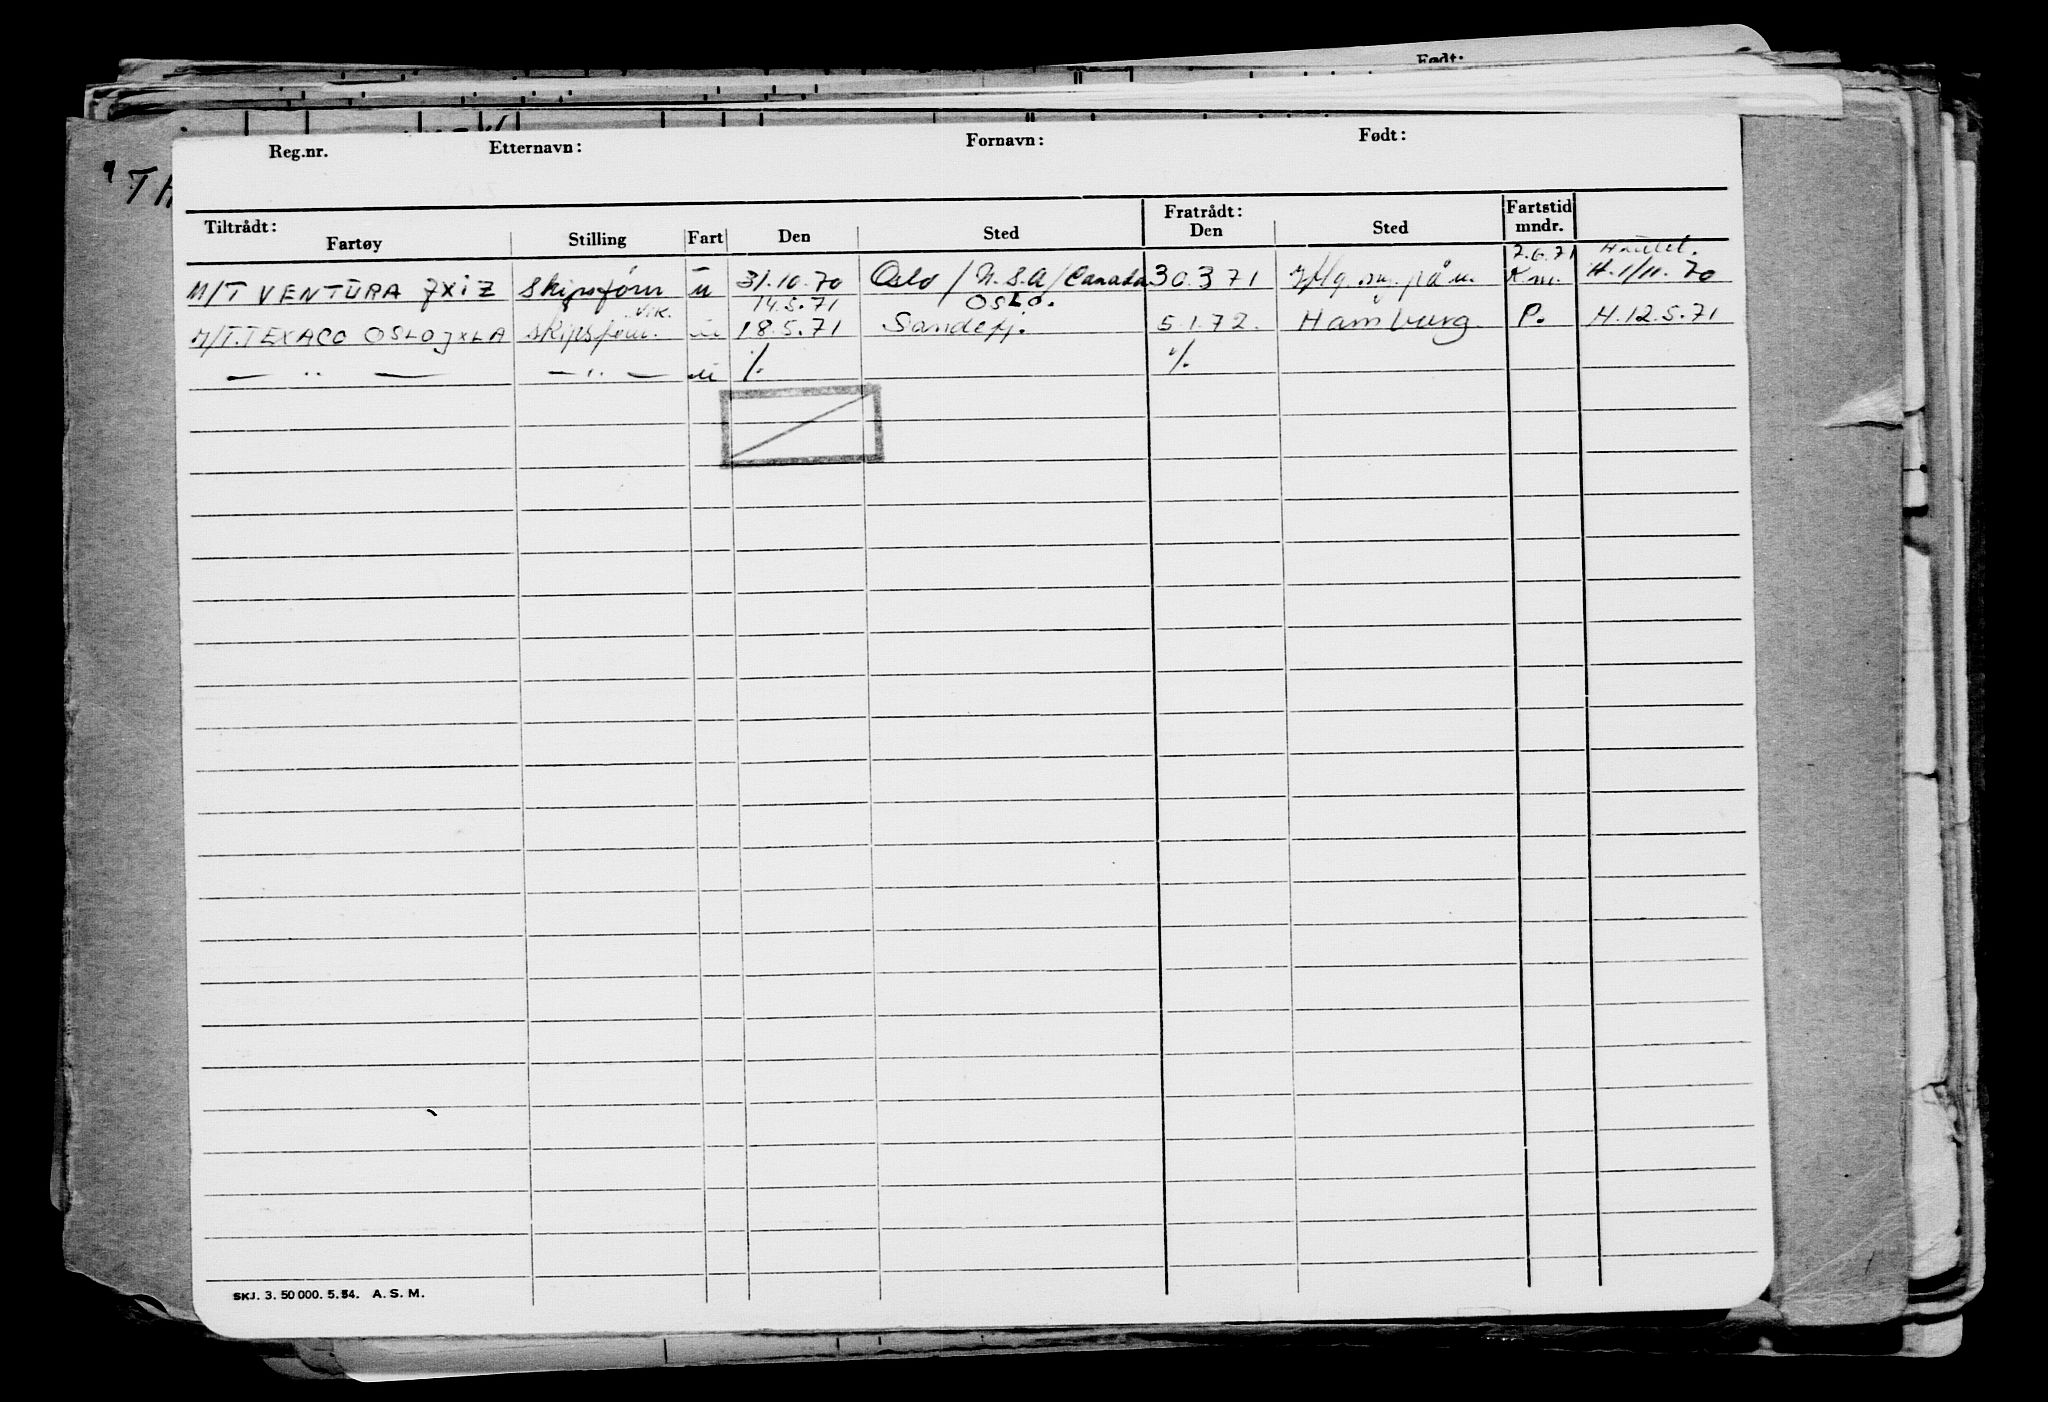 Født:
"TH
Reg.nr. Etternavn: Fornavn: Født:
Tiltrådt: Fratrådt: Fartstid
Fartøy Stilling Fart Den Sted Den Sted mndr.
7.6.71
M/T VENTURA JXIZ Skipsförer u 31.10.70 Oslo / U.S.A/Canada 30.3 71 på H. 1/11. 70
14.5.71 OSLO.
vik.
M/T.TEXACO OSLO JXLA skipsføm. u 18.5.71 Sandefj. 5.1.72. Hamburg. P. H.12.5.71
— " — — " — u %. %.
SKJ. 3. 50 000. 5. 54. A. S. M.